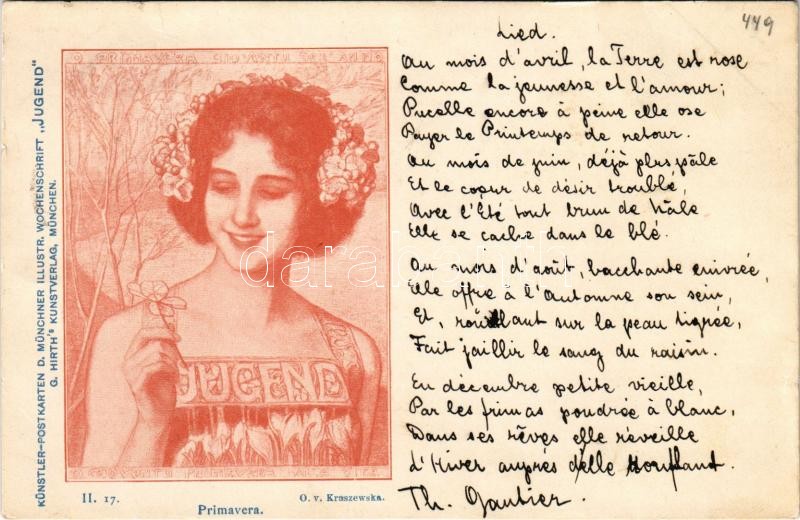 449
KÜNSTLER-POSTKARTEN D. MÜNCHNER ILLUSTR. WOCHENSCHRIFT „JUGEND"
G. HIRTH'S KUNSTVERLAG, MÜNCHEN.
O PRIMAVERA GIOVENTU DELL'ANNO
JUGEND
O GIOVENTU PRIMAVERA DELLA VITA
II. 17.
O. v. Kraszewska.
Primavera.
Lied.
Au mois d'avril, la Terre est rose
Comme la jeunesse et l'amour;
Pucelle encore à peine elle ose
Payer le Printemps de retour.
Au mois de juin, déjà plus pâle
Et le cœur de désir troublé,
Avec l'Eté tout brun de hâle
Elle se cache dans le blé.
Au mois d'août, bacchante enivrée,
Elle offre à l'Automne son sein,
Et, roulant sur la peau tigrée,
Fait jaillir le sang du raisin.
En décembre petite vieille,
Par les frimas poudrée à blanc,
Dans ses rêves elle réveille
d'Hiver auprés d'elle ronflant.
Th. Gautier.
darabanth